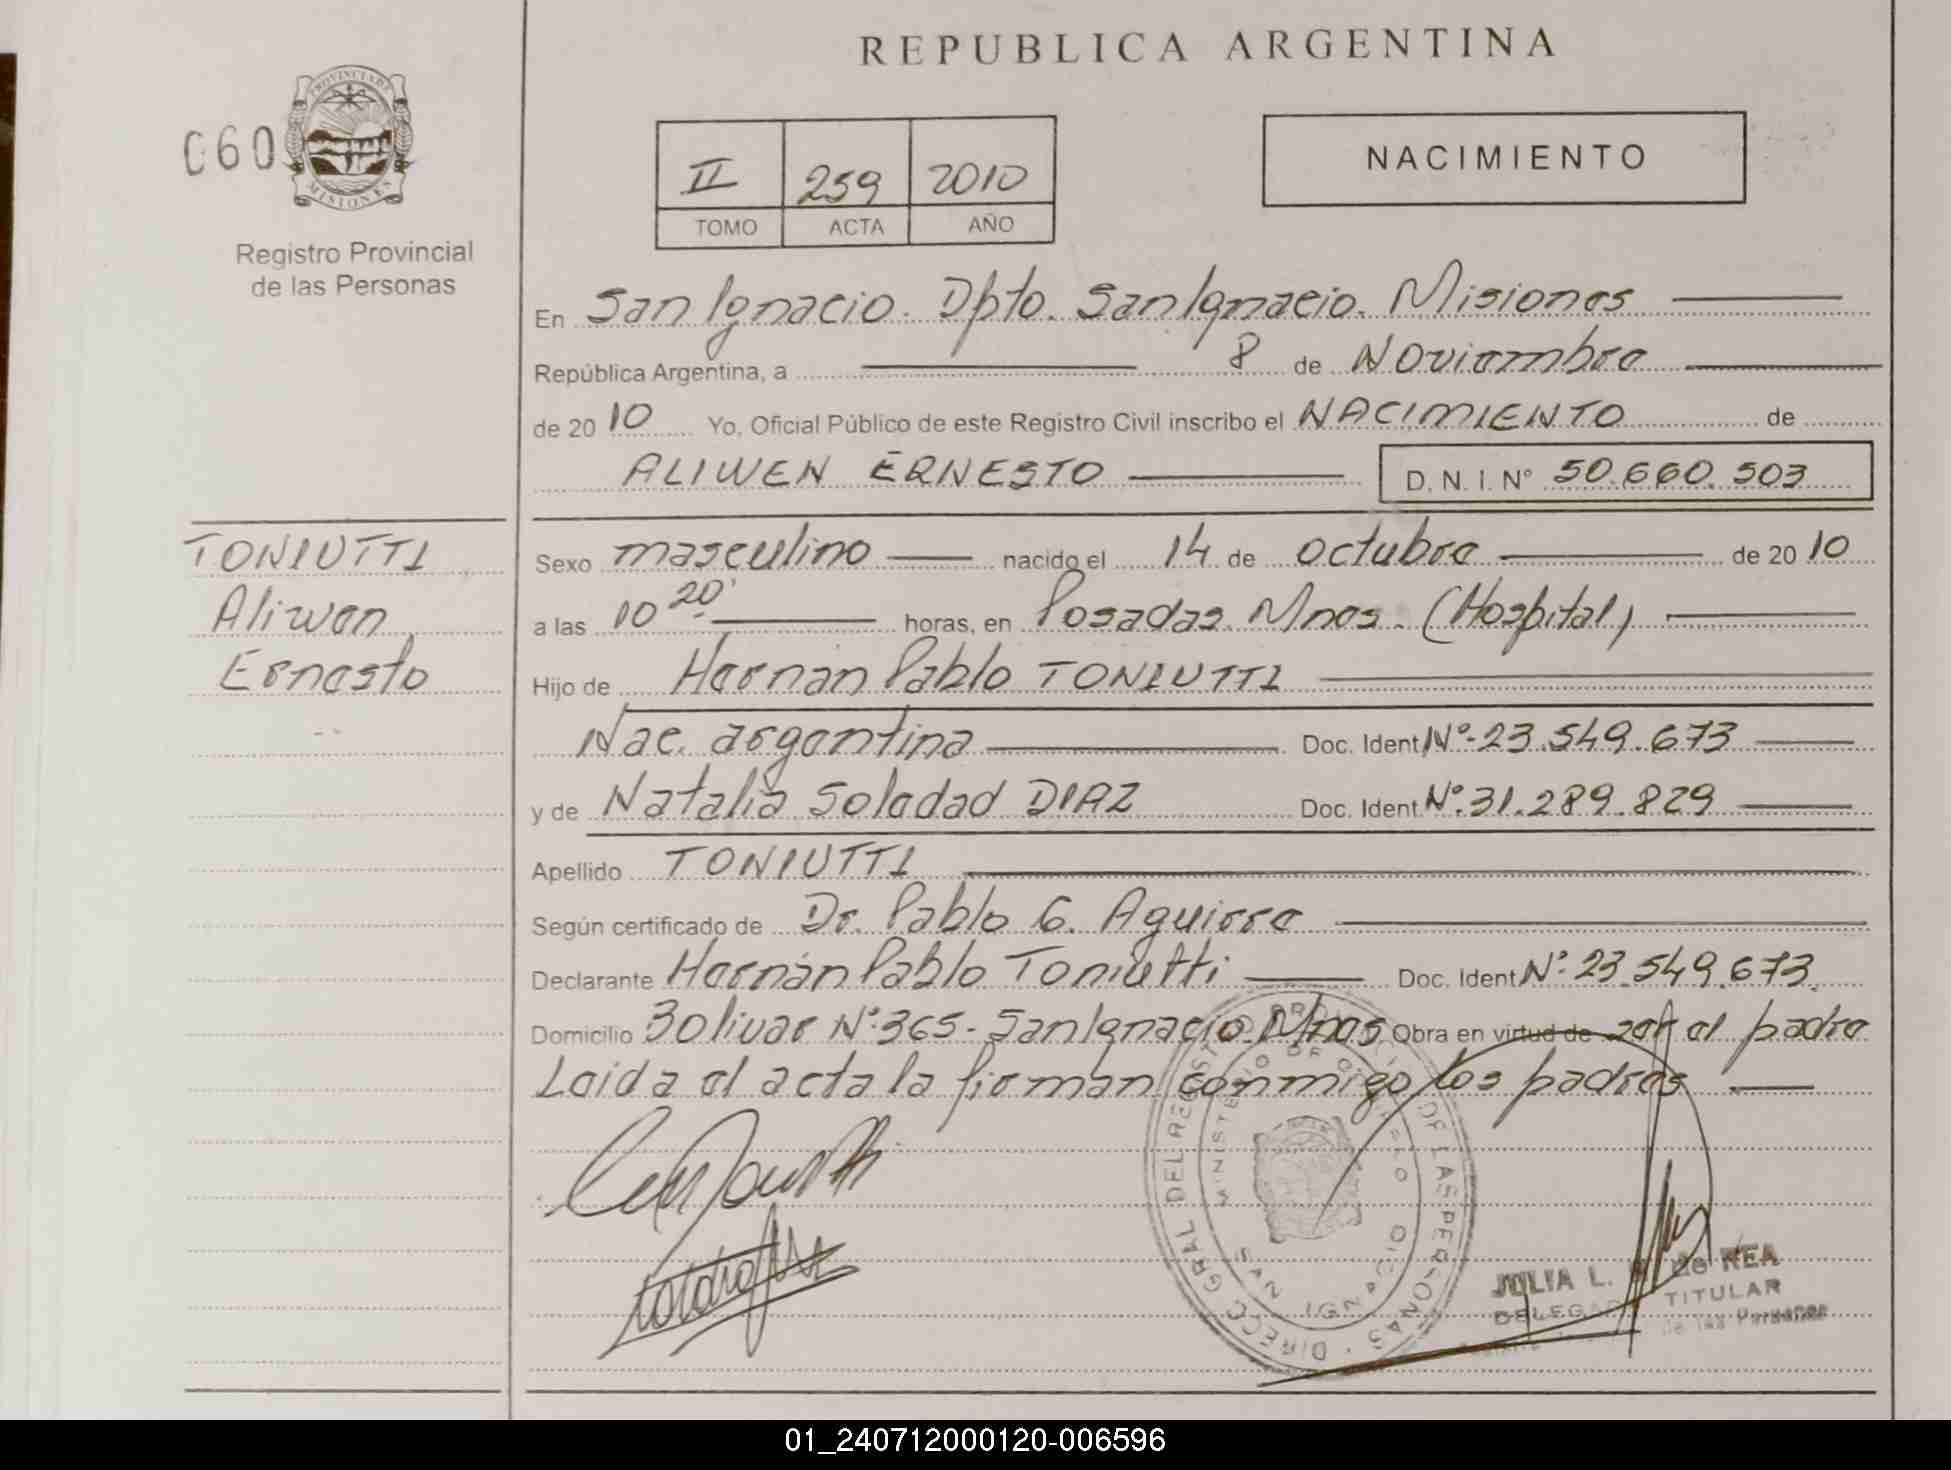 REPUBLICA ARGENTINA
060
PROVINCIA DE MISIONES
Registro Provincial
de las Personas
II 259 2010
TOMO ACTA AÑO
NACIMIENTO
En San Ignacio. Dpto. San Ignacio. Misiones
República Argentina, a 8 de Noviembre
de 2010 Yo, Oficial Público de este Registro Civil inscribo el NACIMIENTO de
ALIWEN ERNESTO D.N.I. Nº 50.660.503
TONIUTTI
Aliwen
Ernesto
Sexo masculino nacido el 14 de octubre de 2010
a las 10 20' horas, en Posadas. Mnes. (Hospital)
Hijo de Hernán Pablo TONIUTTI
Nac. argentina Doc. Ident. Nº 23.549.673
y de Natalia Soledad DIAZ Doc. Ident. Nº 31.289.829
Apellido TONIUTTI
Según certificado de Dr. Pablo G. Aguirre
Declarante Hernán Pablo Toniutti Doc. Ident. Nº 23.549.673
Domicilio Bolivar Nº 365 - San Ignacio. Mnes Obra en virtud de ser el padre
Leida el acta la firman conmigo los padres
DIRECC. GRAL DEL REGISTRO PROVINCIAL DE LAS PERSONAS
MINISTERIO DE GOBIERNO
SAN IGNACIO
JULIA L. de REA
TITULAR
de las Personas
01_240712000120-006596